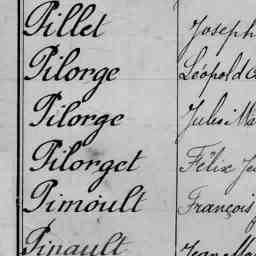 Pillet Joseph
Pilorge Léopold
Pilorge Jules
Pilorget Félix
Pimoult François
Pinault Jean